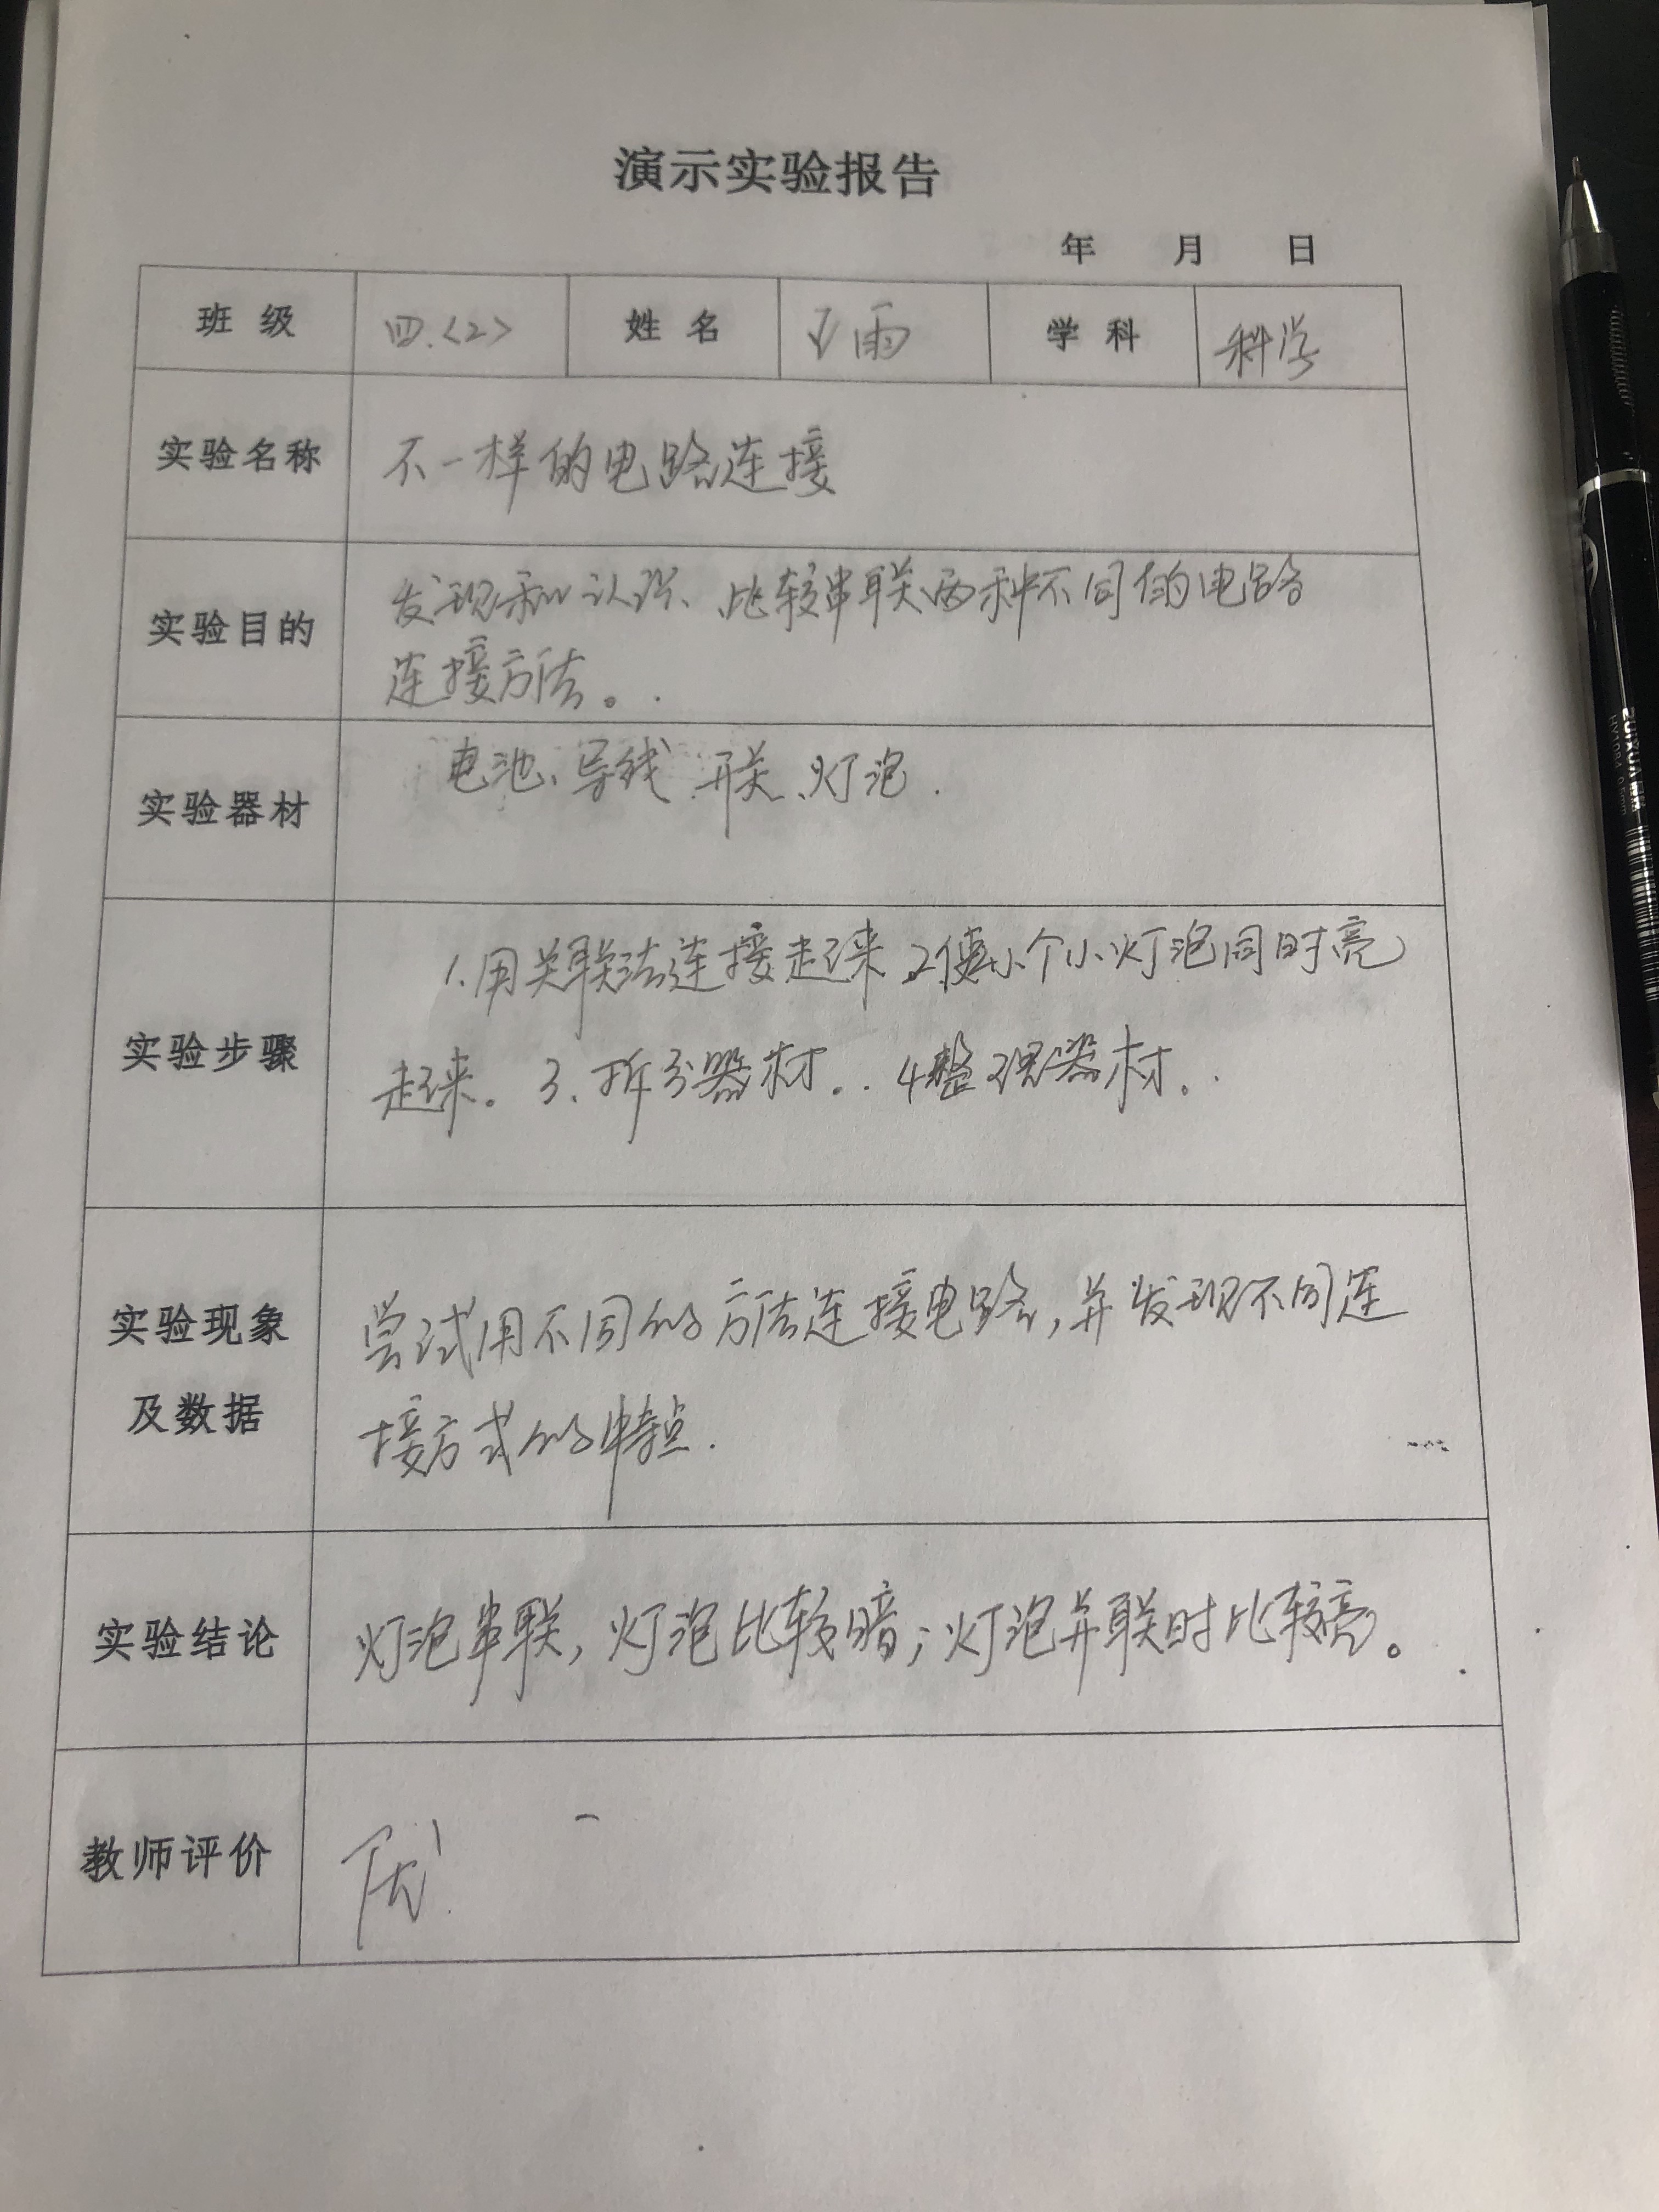 演示实验报告
年 月 日
班级 四.<2> 姓名 王雨 学科 科学
实验名称 不一样的电路连接
实验目的 发现和认识、比较串联两种不同的电路
连接方法。.
实验器材 电池、导线 开关、灯泡.
实验步骤 1.用关联法连接起来.2.使小个小灯泡同时亮
起来。3、拆分器材。. 4整理器材。.
实验现象
及数据
尝试用不同的方法连接电路,并发现不同连
接方式的特点.
实验结论 灯泡串联,灯泡比较暗;灯泡并联时比较亮。
教师评价 优